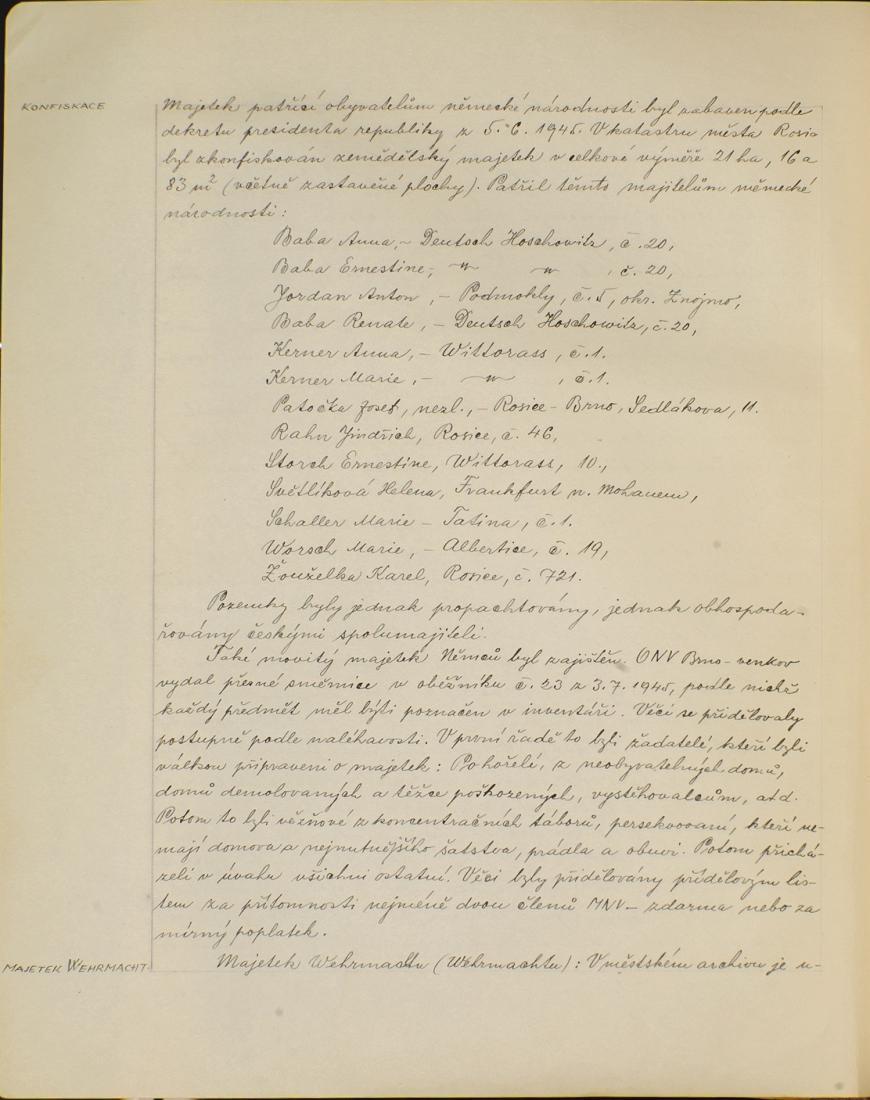 KONFISKACE
Majetek patřící obyvatelům německé národnosti byl zabaven podle
dekretu presidenta republiky z 5. 6. 1945. V katastru města Rosic
byl zkonfiskován zemědělský majetek v celkové výměře 21 ha, 16 a
83 m² (včetně zastavěné plochy). Patřil těmto majitelům německé
národnosti:
Baba Anna, - Deutsch Hoschowitz, č. 20,
Baba Ernestine, -"- -"- , č. 20,
Jordan Anton, - Podmokly, č. 5, okr. Znojmo,
Baba Renate, - Deutsch Hoschowitz, č. 20,
Kerner Anna, - Wittorass, č. 1.
Kerner Marie, - -"- , č. 1.
Patočka Josef, nezl., - Rosice - Brno, Sedlákova, 11.
Rahn Jindřich, Rosice, č. 46,
Storch Ernestine, Wittorass, 10.,
Světlíková Helena, Frankfurt n. Mohanem,
Schaller Marie - Tatina, č. 1.
Worsch Marie, - Albertice, č. 19,
Žouželka Karel, Rosice, č. 721.
Pozemky byly jednak propachtovány, jednak obhospoda-
řovány českými spolumajiteli.
Také movitý majetek Němců byl zajištěn. ONV Brno-venkov
vydal přesné směrnice v oběžníku č. 23 z 3. 7. 1945, podle nichž
každý předmět měl býti poznačen v inventáři. Věci se přidělovaly
postupně podle naléhavosti. V první řadě to byli žadatelé, kteří byli
válkou připraveni o majetek: Pohořelí, z neobyvatelných domů,
domů demolovaných a těžce poškozených, vystěhovalcům, atd.
Potom to byli vězňové z koncentračních táborů, persekvovaní, kteří ne-
mají domova a nejnutnějšího šatstva, prádla a obuvi. Potom přichá-
zeli v úvahu všichni ostatní. Věci byly přidělovány přídělovým lis-
tem za přítomnosti nejméně dvou členů MNV - zdarma nebo za
mírný poplatek.
MAJETEK WEHRMACHT.
Majetek Wehrmachtu (Wehrmachtu): V městském archivu je u-